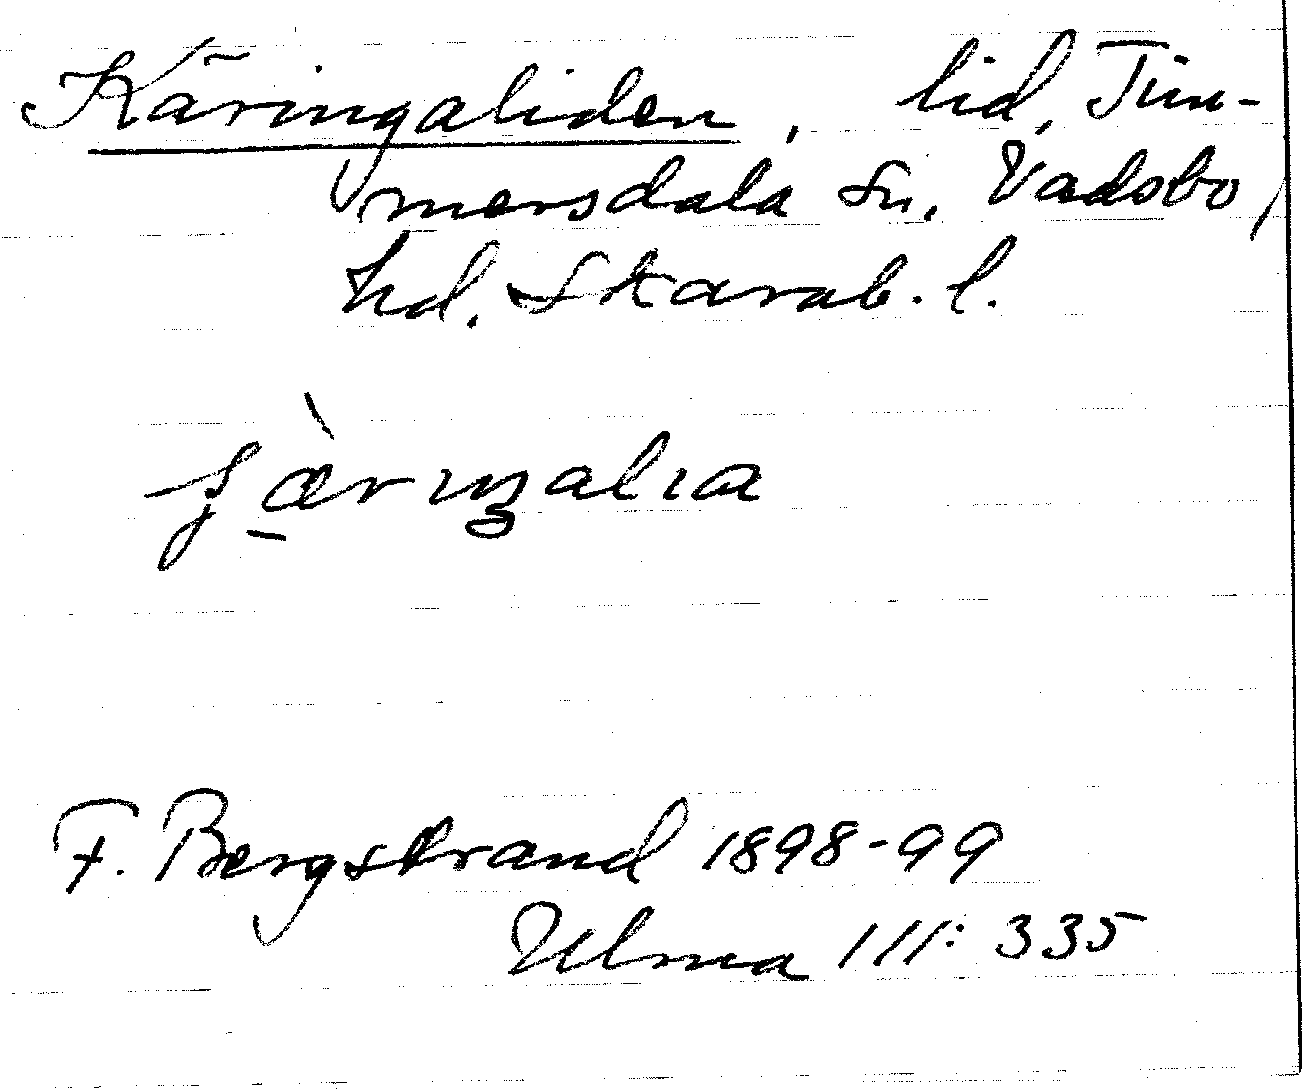 Käringaliden, lid, Tim-
mersdala sn. Vadsbo
hd. Skarab. l.
F. Bergstrand 1898-99
Ulma 111: 335